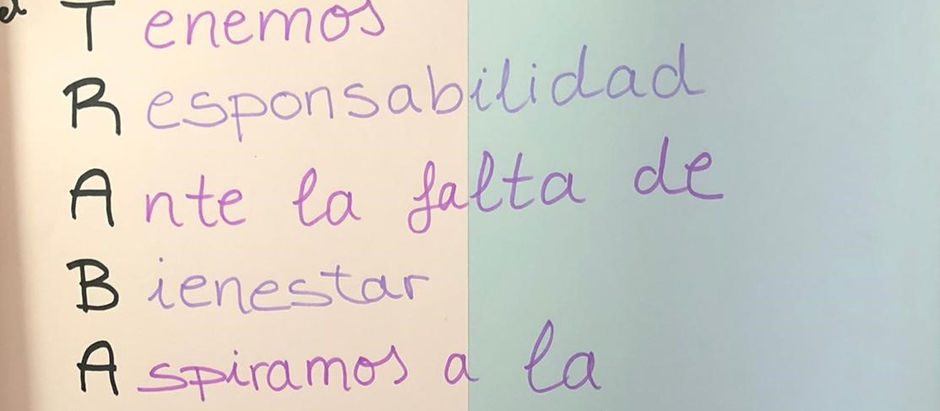 Tenemos
Responsabilidad
Ante la falta de
Bienestar
Aspiramos a la